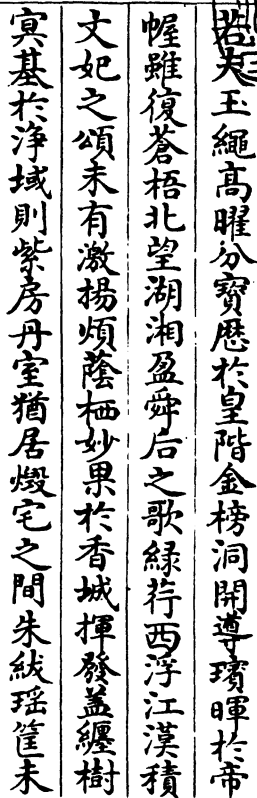 若夫玉繩髙曜分寶歷於皇階金榜洞開導璸暉於帝
幄雖復蒼梧北望湖湘盈舜后之歌綠荇西浮江漢積
文妃之頌未有激揚煩蔭栖妙果於香城揮發蓋纏樹
冥基於淨域則紫房丹室猶居燬宅之間朱紱瑶筐未